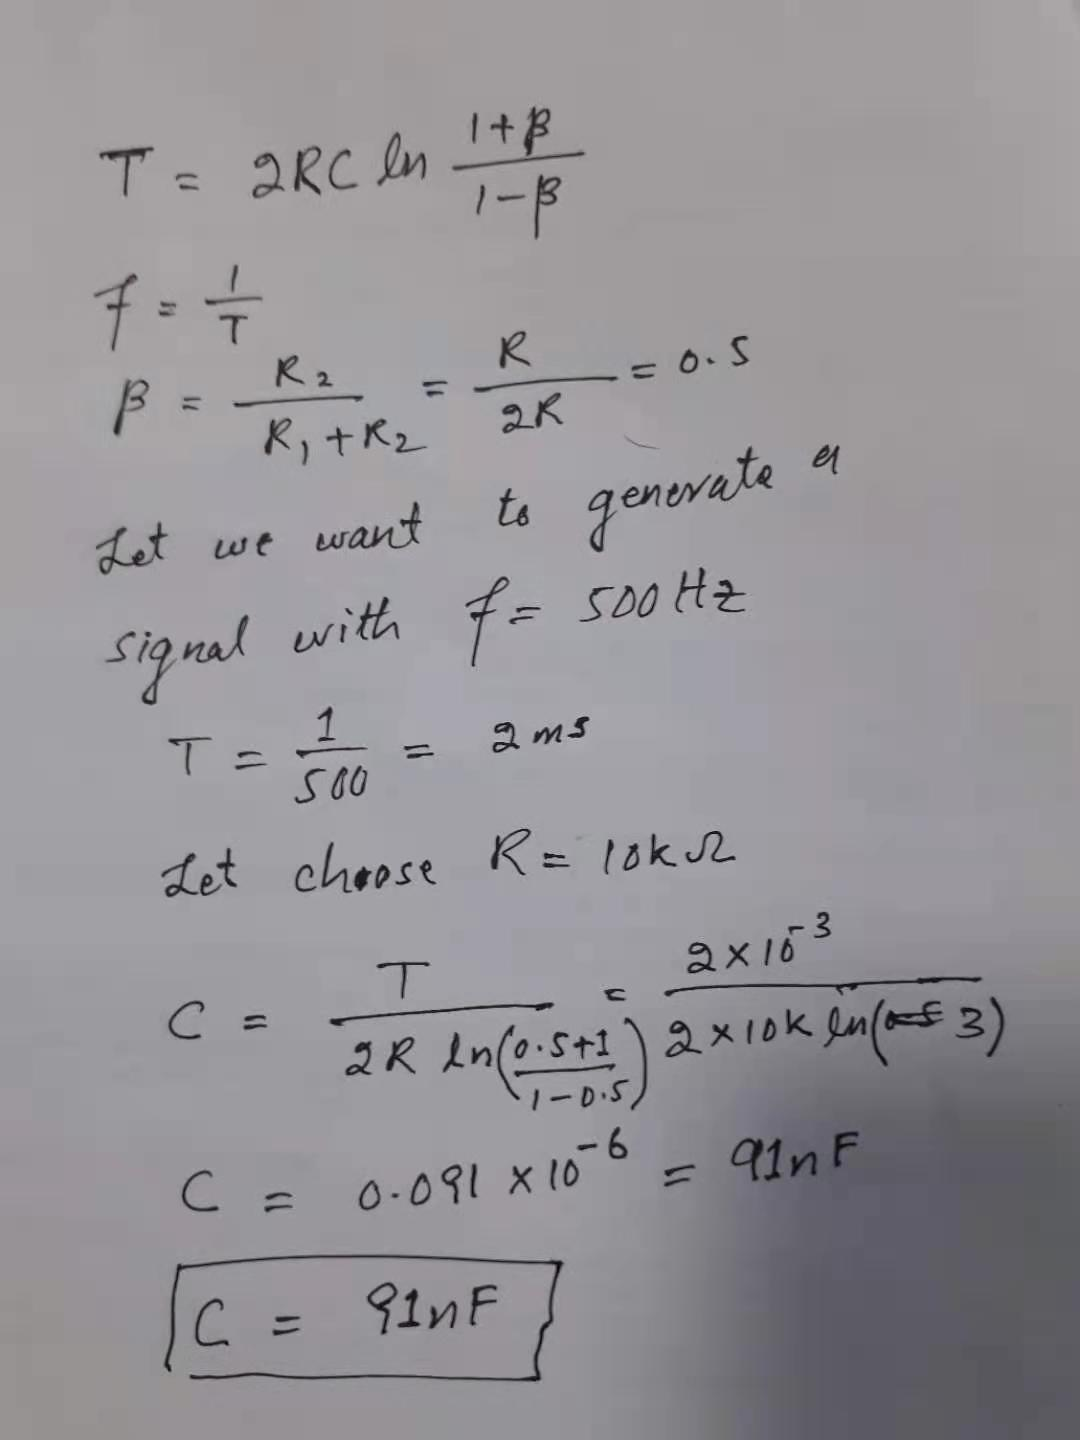 T = 2RC ln (1+β)/(1-β)
f = 1/T
β = R2/(R1+R2) = R/2R = 0.5
Let we want to generate a
signal with f = 500 Hz
T = 1/500 = 2 ms
Let choose R = 10kΩ
C = T/(2R ln((0.5+1)/(1-0.5))) = (2×10^-3)/(2×10K ln(3))
C = 0.091 × 10^-6 = 91nF
C = 91nF